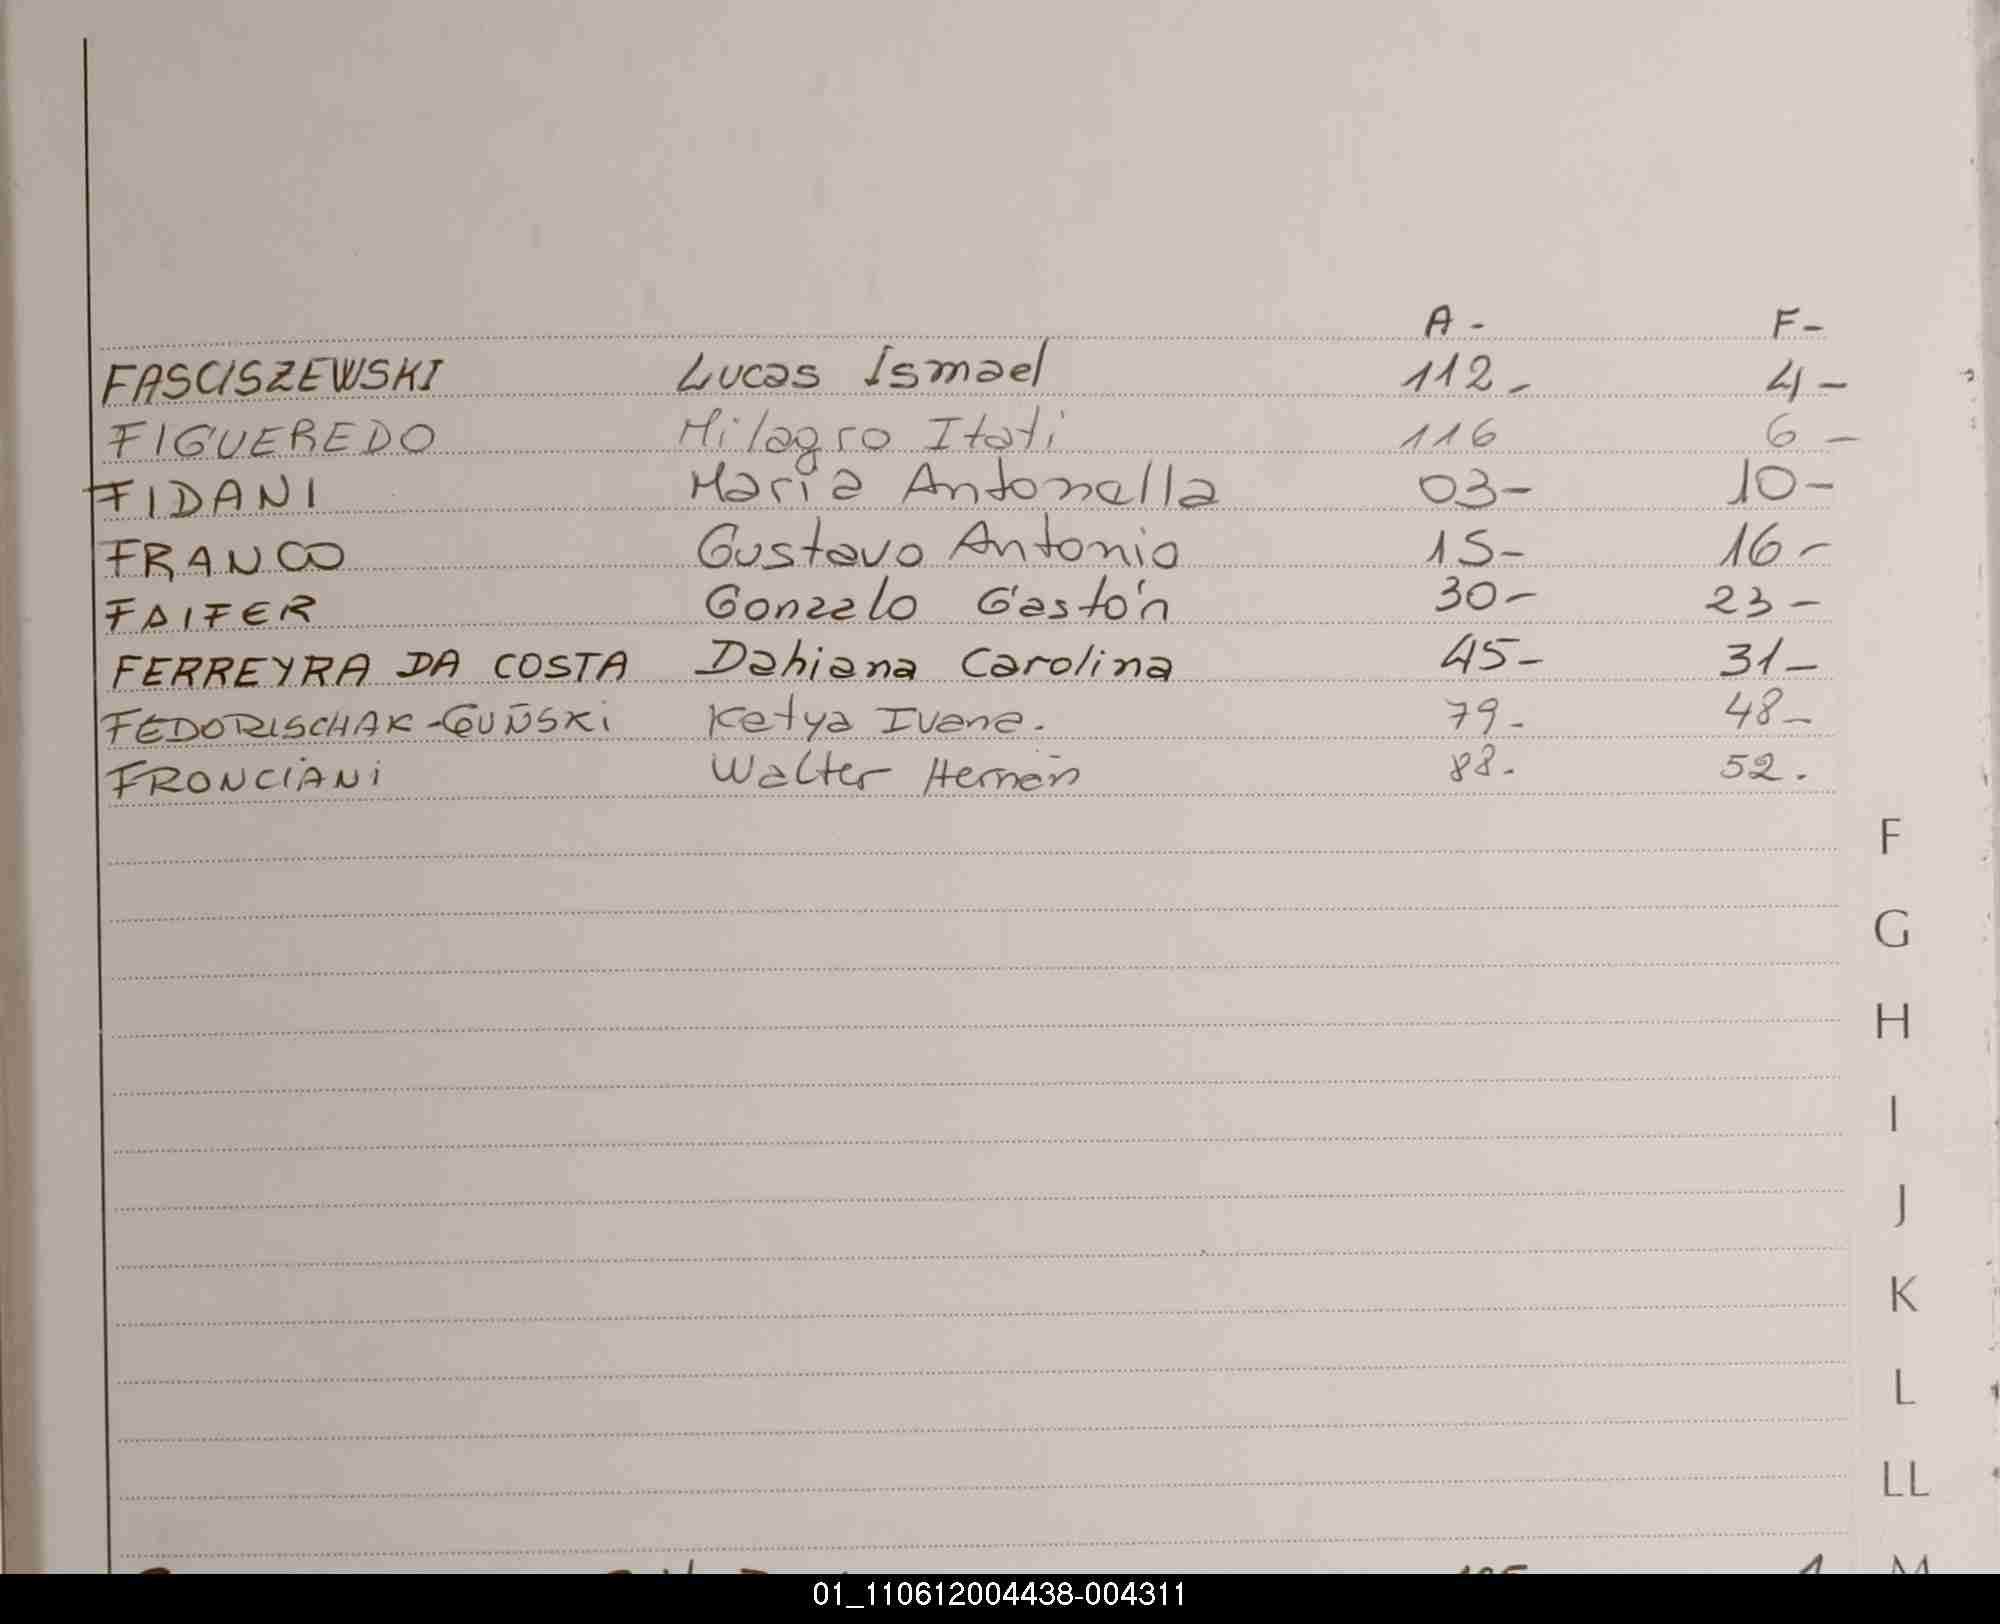 A - F -
FASCISZEWSKI Lucas Ismael 112 - 4 -
FIGUEREDO Milagro Itati 116 6 -
FIDANI Maria Antonella 03 - 10 -
FRANCO Gustavo Antonio 15 - 16 -
FAIFER Gonzalo Gastón 30 - 23 -
FERREYRA DA COSTA Dahiana Carolina 45 - 31 -
FEDORISCHAK - Katya Ivana. 79 - 48 -
FRONCIANI Walter Hernán 88 - 52 .
F
G
H
I
J
K
L
LL
M
01_110612004438-004311